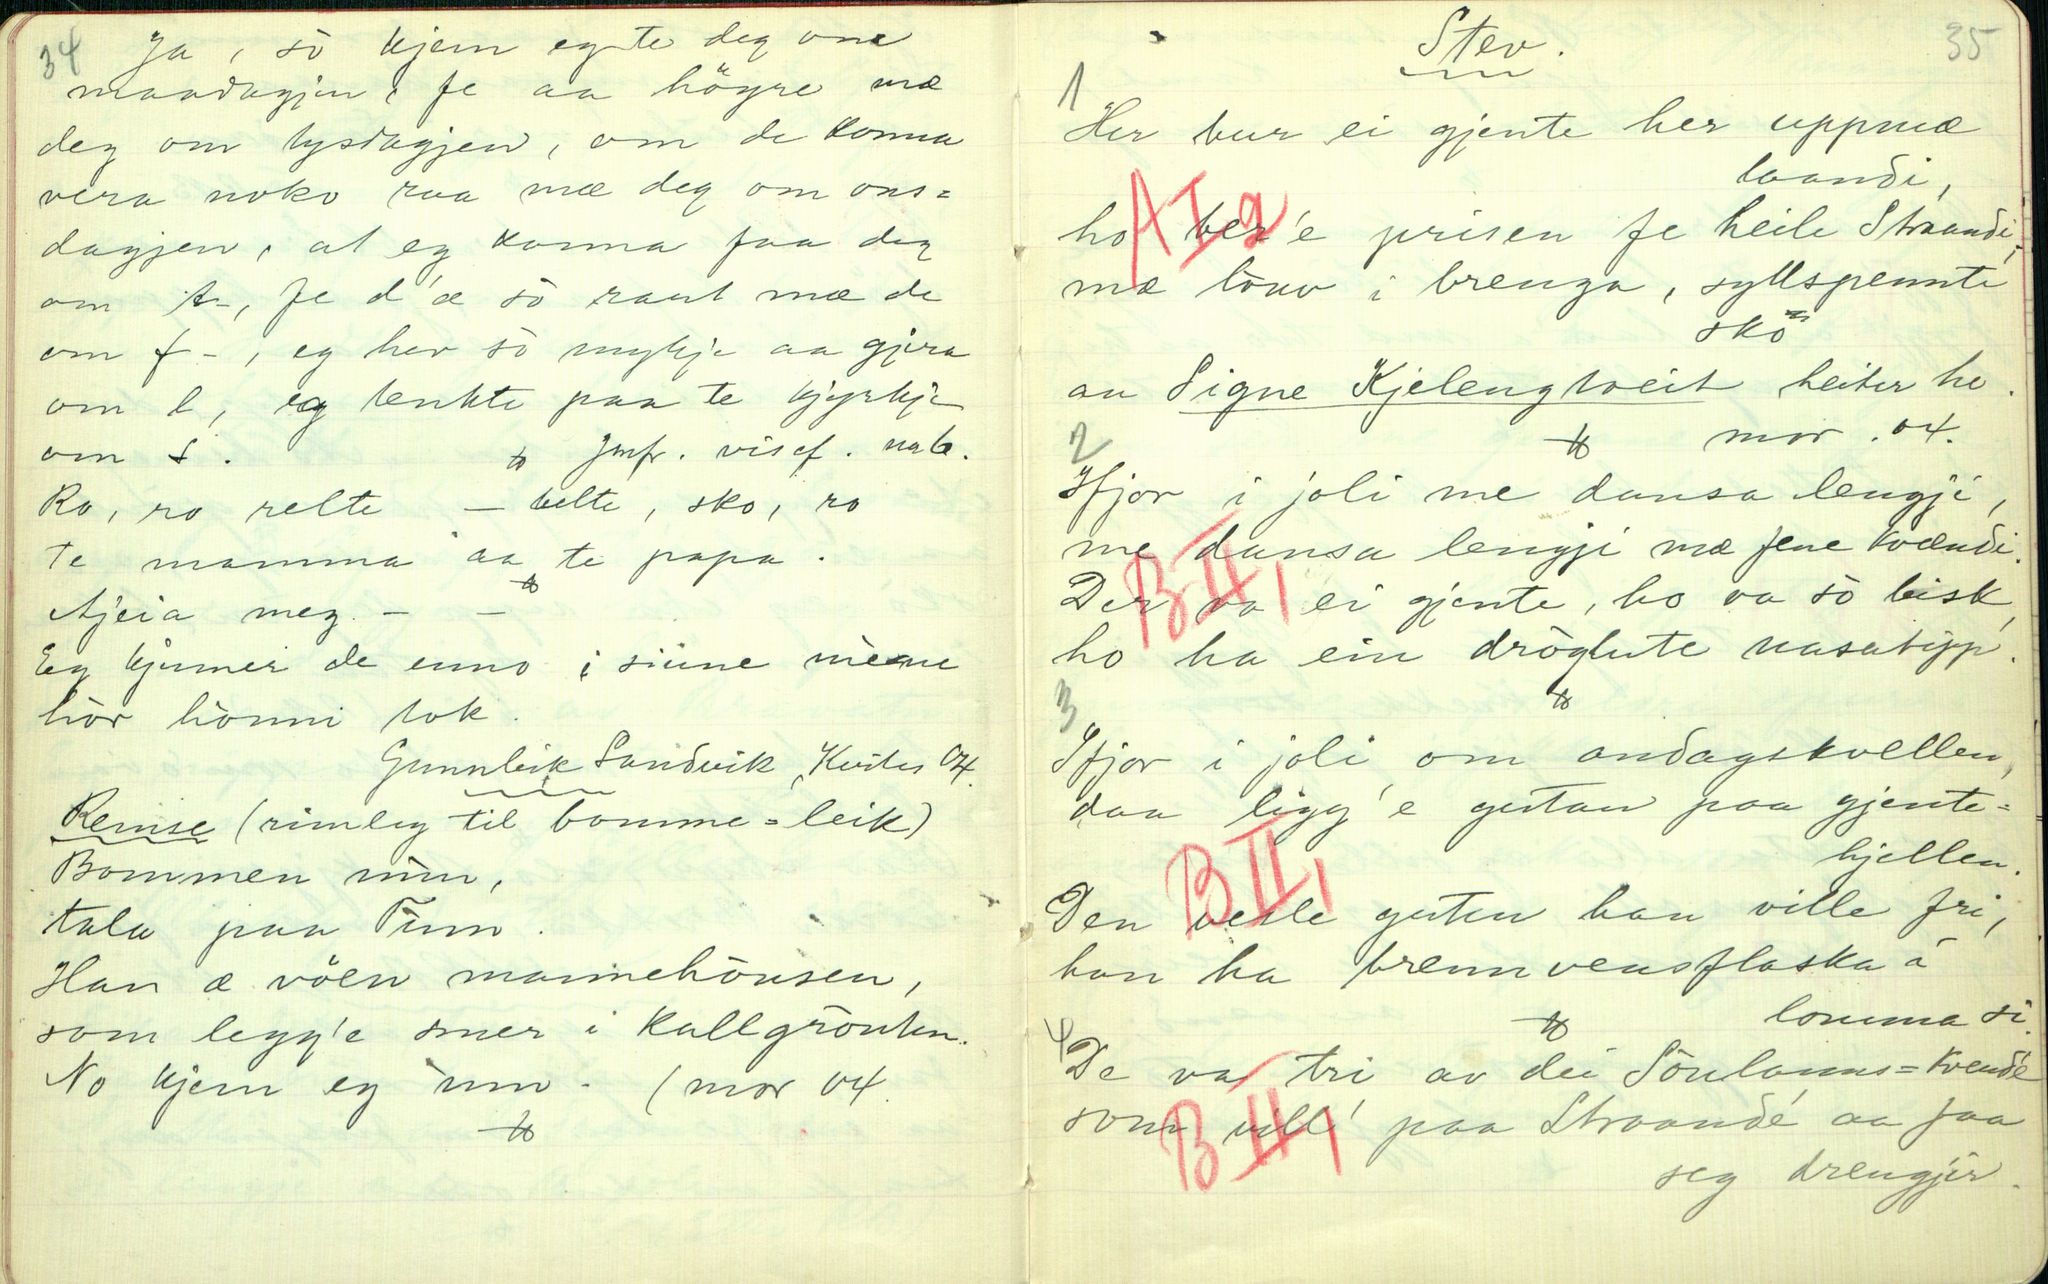 34
Ja, sò kjem eg te deg om
maandagjen, fe aa högre mæ
deg om tysdagjen, om de konna
vera noko raa mæ deg om ons=
dagjen, at eg konna faa deg
om t-, fe d'æ sò rant mæ de
om f-, eg hev sò mykje aa gjera
om l, eg tenkte paa te kjyrkje
om s. Jmfr. visef.
Ro, ro relte — belte, sko, ro
te mamma aa te papa.
Ajeia meg. — —
Eg kjenner de enno i siune mène
hòr hònni tok.
Gunnleik Sandvik, Kvites 04.
Remse (rimleg til bomme=leik)
Bommen min,
tala paa Finn.
Han æ vöen mannehòusen,
som legg'e smer i kallgròuten.
No kjem eg inn. (mor 04.
35
Stev.
1
Her bur ei gjente her uppmæ
laandi,
ho ber'e prisen fe heile Straandi,
mæ lòuv i brenga, syllspennte
sko
au Signe Kjelengtveit heiter ho.
mor. 04.
2
Ifjor i joli me dansa lengji,
me dansa lengji mæ jene kvændi.
Der va ei gjente, ho va sò bisk,
ho ha ein dròglute nasatipp.
3
Ifjor i joli om andagskvellen,
daa ligg'e gutan paa gjente=
hjellen.
Den vesle guten han ville fri,
han ha brennvensflaska i
lomma si.
4
De va tri av dei Sòulanns=kvendé
som vill' paa Straandé aa faa
seg drengjir.
A I a
B II,
B II,
B II,